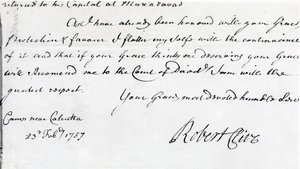 returned to his Capital at Muxadavad
As I have already been honoured with your Graces
Protection & favour I flatter my Self with the continuance
of it and that if your Grace thinks me deserving your Grace
will Recomend me to the Court of Directors I am with the
greatest respect.
Your Graces most devoted humble Serv
Camp near Calcutta
23d Feby 1757
Robert Clive